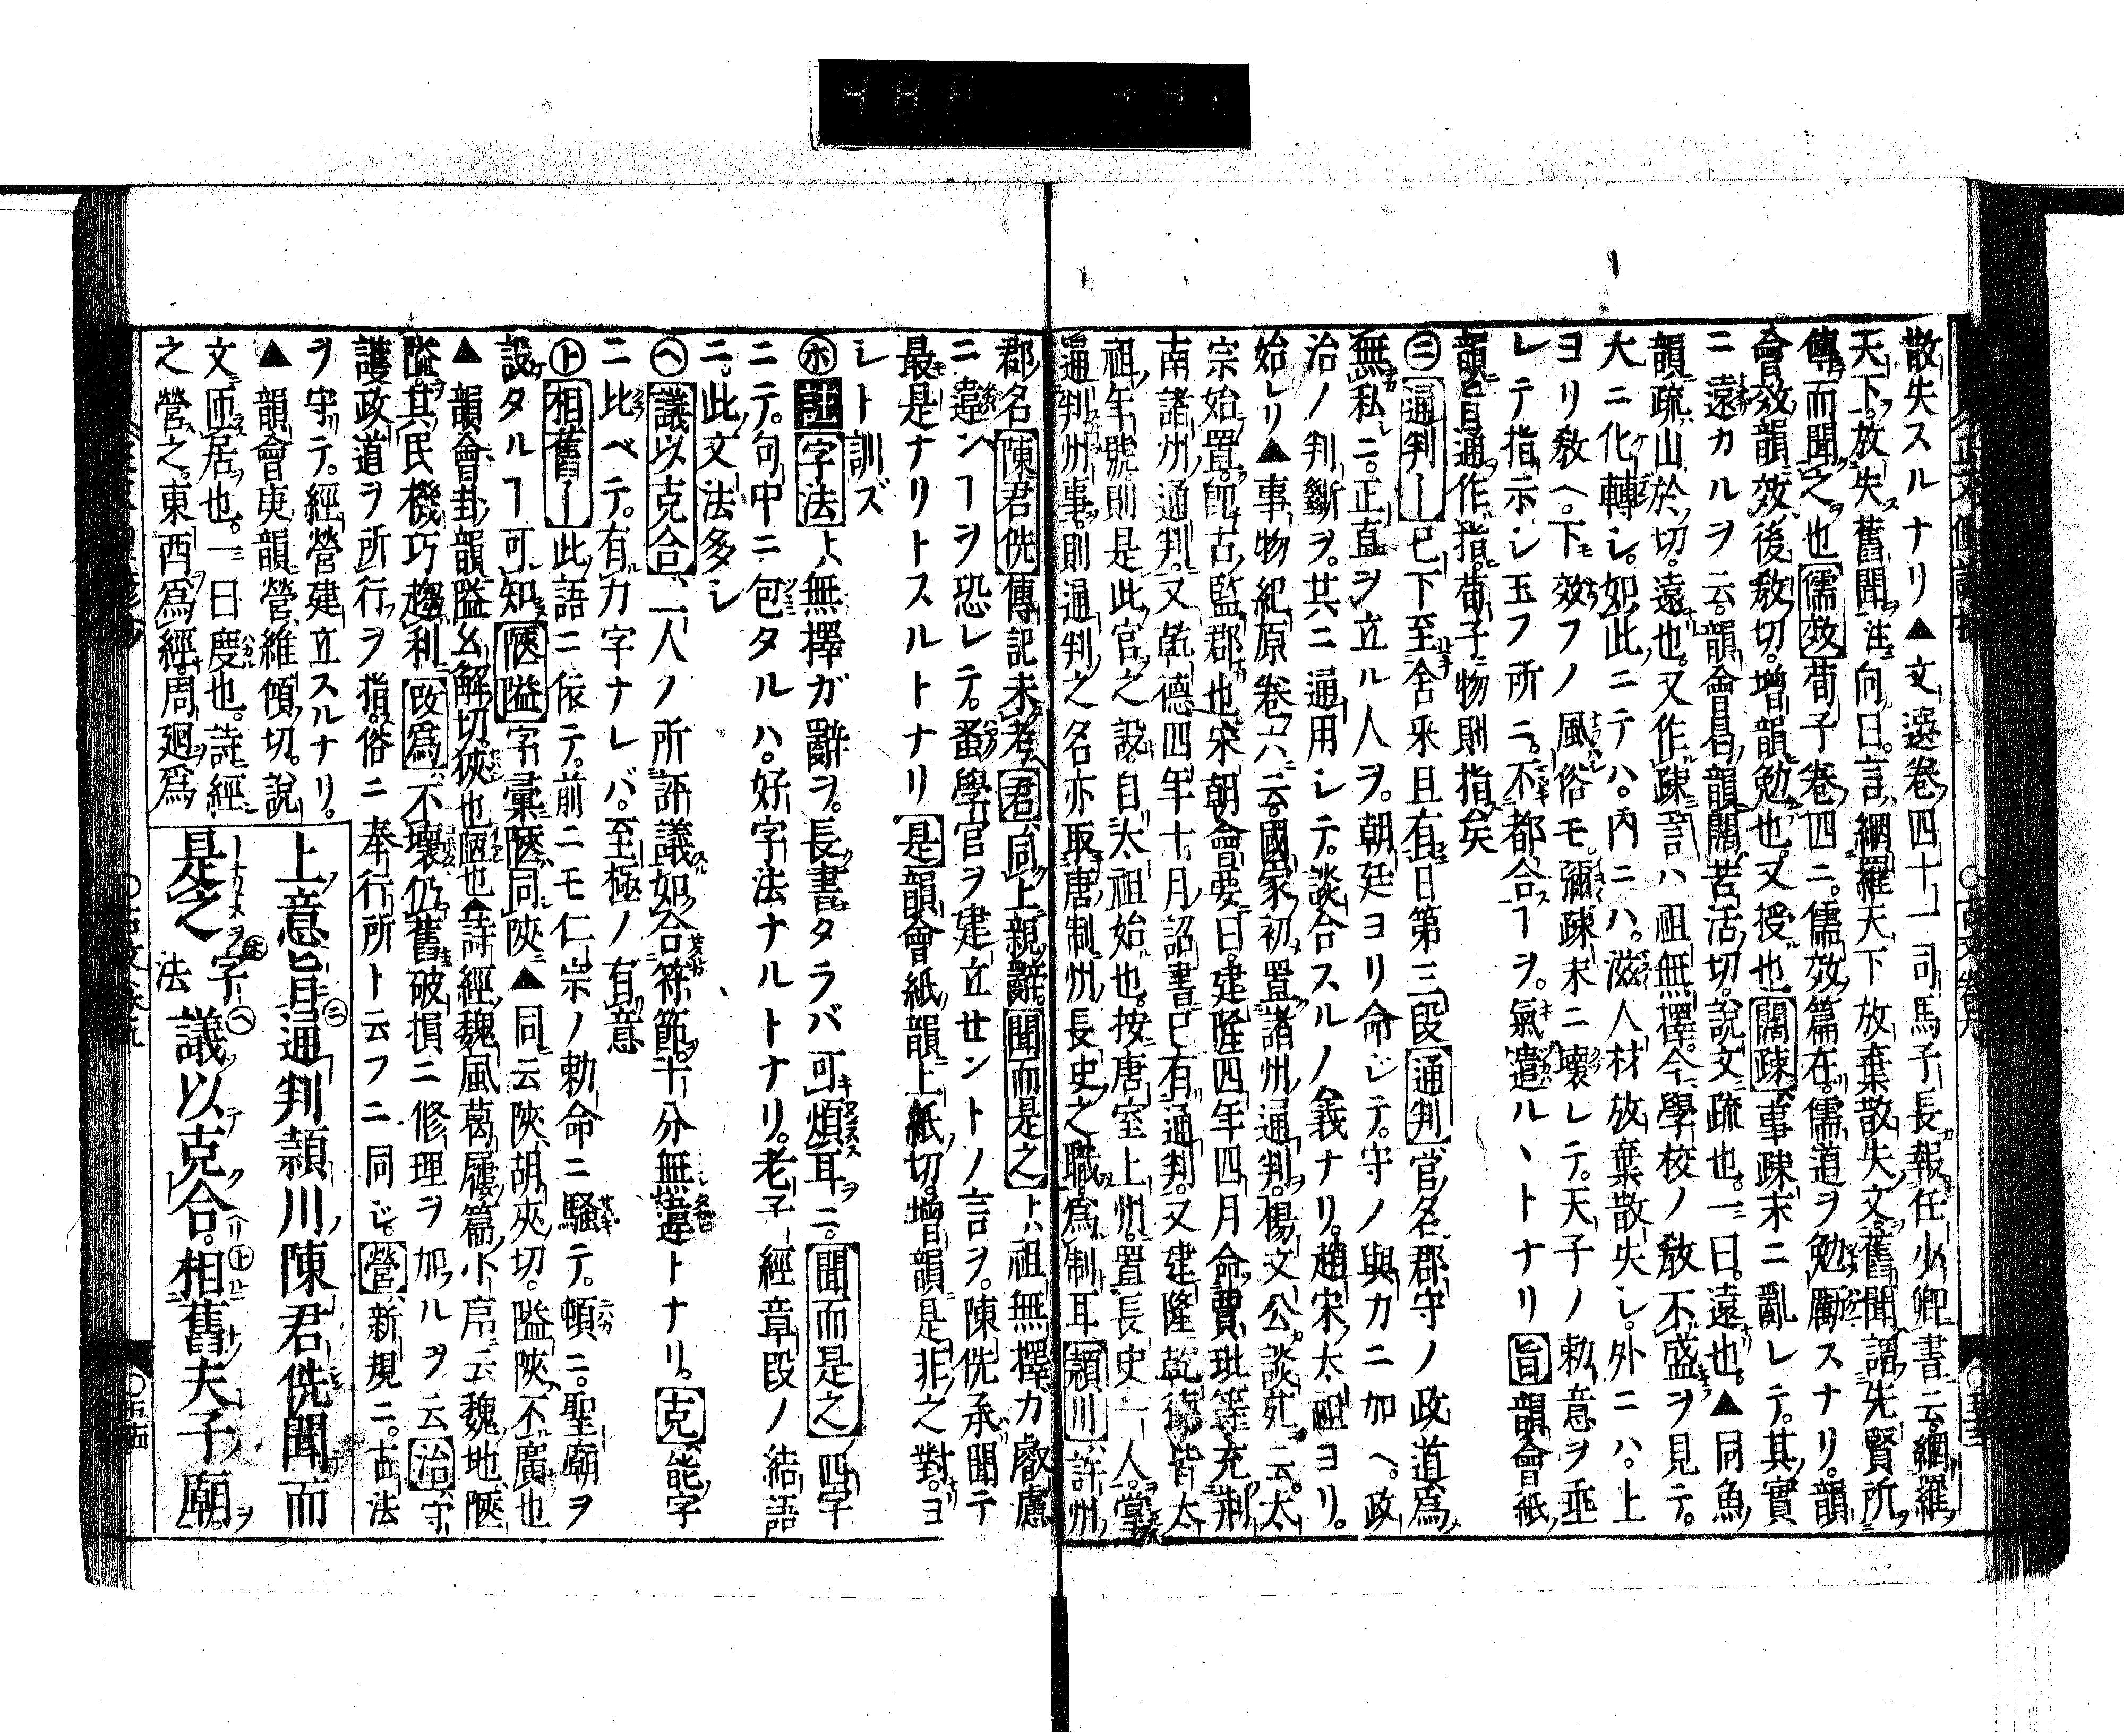 散失スルナリ▲文選巻四十一司馬子長報任少卿書云網羅
天下放失舊聞注向曰言網羅天下放棄散失文舊聞謂先賢所
傳而聞之也儒效荀子巻四ニ儒效篇在儒道ヲ勉厲スナリ韻
會效韻效後敎切增韻勉也又授也闊疎事疎末ニ亂レテ其實
ニ遠カルヲ云韻會曷韻闊苦活切說文疏也一曰遠也▲同魚
韻疏山於切遠也又作疎言ハ祖無擇今學校ノ敎不盛ヲ見テ
大ニ化轉シ如此ニテハ內ニハ滋人材放棄散失シ外ニハ上
ヨリ敎ヘ下效フノ風俗モ彌疎末ニ壞レテ天子ノ勅意ヲ垂
レテ指示シ玉フ所ニ不都合ヿヲ氣遣ルヽトナリ旨韻會紙
韻旨通作指荀子物則指矣
㊁通判ー已下至舍釆且有日第三段通判官名郡守ノ政道爲
無私ニ正直ヲ立ル人ヲ朝廷ヨリ命ジテ守ノ與力ニ加ヘ政
治ノ判斷ヲ其ニ通用シテ談合スルノ義ナリ趙宋太祖ヨリ
始レリ▲事物紀原巻六云國家初置諸州通判楊文公談苑云太
宗始置卽古監郡也宋朝會要曰建隆四年四月命賈玭等充荆
南諸州通判又乾德四年十月詔書已有通判又建隆乾德皆太
祖年號則是此官之設自太祖始也按唐室上州置長史一人掌
通判州事則通判之名亦取唐制州長史之職爲制耳頴川許州
郡名陳君侁傳記未考君同上親辭聞而是之トハ祖無擇ガ叡慮
ニ違ンヿヲ恐レテ蚤學官ヲ建立セントノ言ヲ陳侁承聞テ
最是ナリトスルトナリ是韻會紙韻上紙切增韻是非之對ヨ
シト訓ズ
㋭註字法トハ無擇ガ辭ヲ長書タラバ可煩耳ニ聞而是之四字
ニテ句中ニ包タルハ好字法ナルトナリ老子經章段ノ結語
ニ此文法多シ
㋬議以克合一人ノ所評議如合符節十分無違トナリ克能字
ニ比ベテ有力字ナレバ至極ノ有意
㋣相舊ー此語ニ依テ前ニモ仁宗ノ勅命ニ騷テ頓ニ聖廟ヲ
設タルヿ可知陿隘字彙陿同陜▲同云陜胡夾切隘陜不廣也
▲韻會卦韻隘幺解切狹也陋也▲詩經魏風葛屨篇小序云魏地陿
隘其民機巧趨利改爲不壞仍舊破損ニ修理ヲ加ルヲ云治守
護政道ヲ所行ヲ指俗ニ奉行所ト云フニ同ジ營新規ニ古法
ヲ守テ經營建立スルナリ
▲韻會庚韻營維傾切說
文匝居也一曰度也詩經
之營之東西爲經周廻爲
上意旨通判頴川陳君侁聞而
是之字法議以克合相舊夫子廟